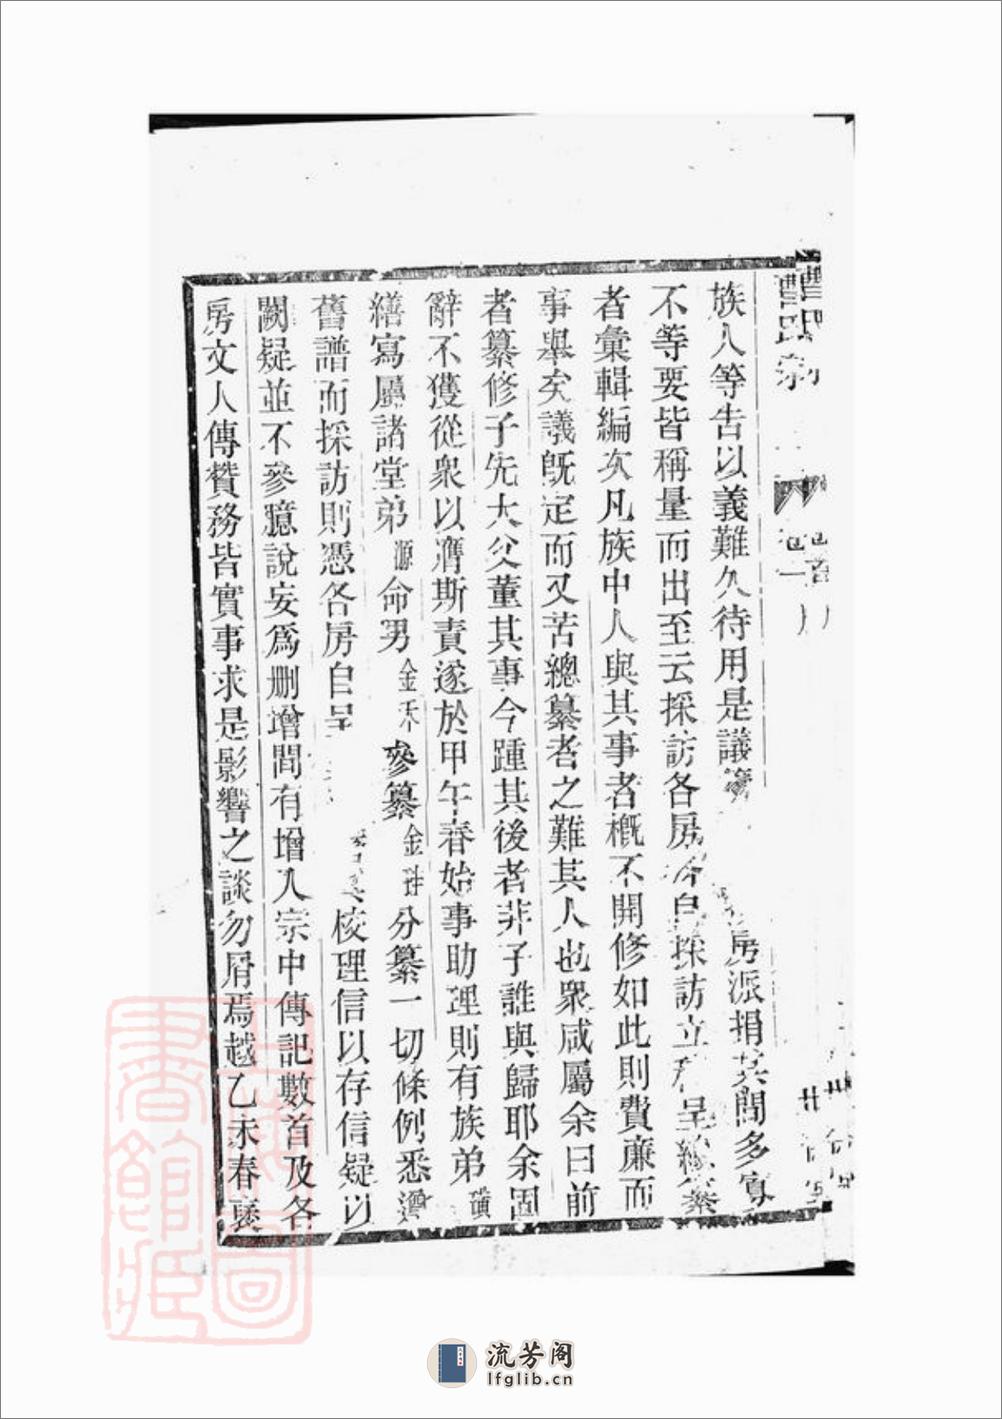 族人等告以義難久待用是議
房派捐其間多寡
不等要皆稱量而出至云採訪各房各自採訪立稿呈總纂
者彙輯編次凡族中人與其事者概不開修如此則費廉而
事舉矣議旣定而又苦總纂者之難其人也衆咸屬余曰前
者纂修子先大父董其事今踵其後者非子誰與歸耶余固
辭不獲從衆以濟斯責遂於甲午春始事助理則有族弟
繕寫屬諸堂弟源命男金禾參纂金分纂一切條例悉遵
舊譜而採訪則憑各房自呈
校理信以存信疑以
闕疑並不參臆說妄爲删增間有增入宗中傳記數首及各
房文人傳贊務皆實事求是影響之談勿屑焉越乙未春
卷一
流芳阁
lfglib.cn